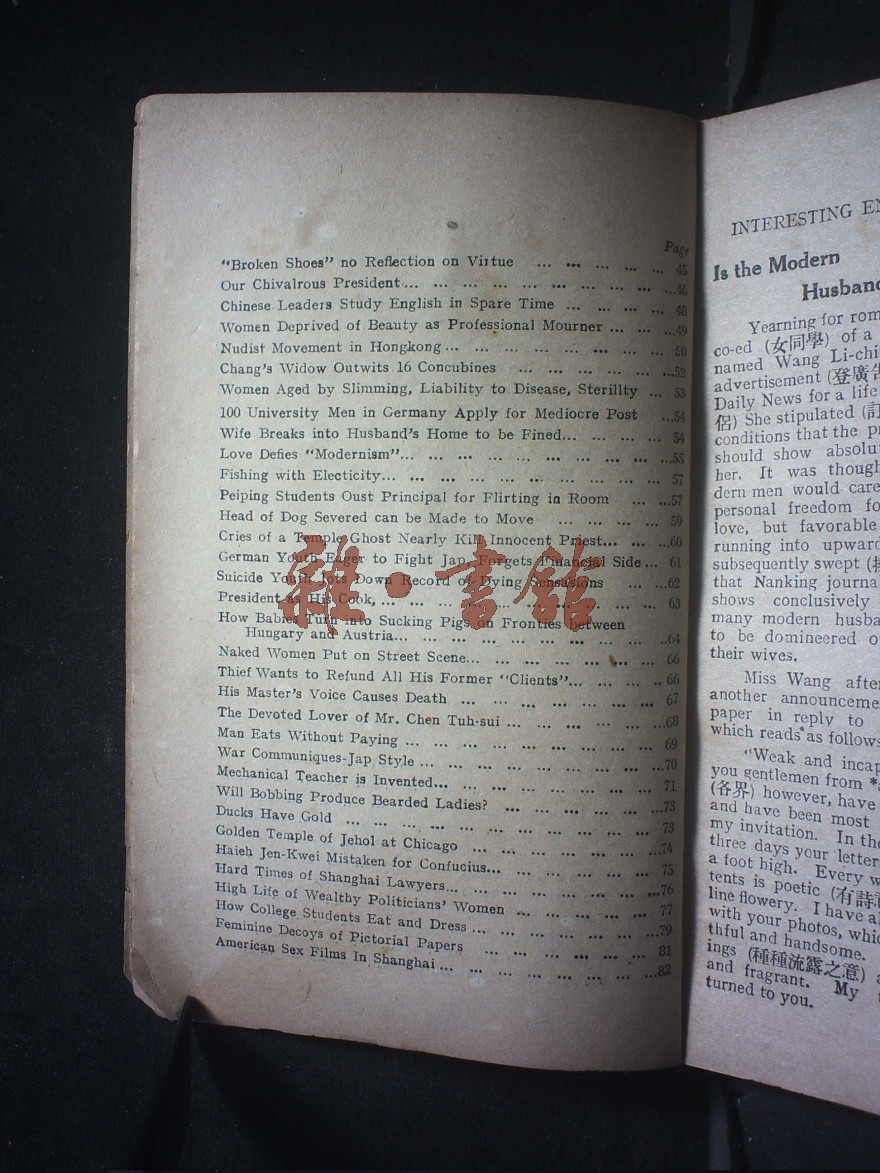 Page
"Broken Shoes" no Reflection on Virtue ... ... ... ... ... 45
Our Chivalrous President... ... ... ... ... ... ... ... ... ...46
Chinese Leaders Study English in Spare Time ... ... ... ... 48
Women Deprived of Beauty as Professional Mourner ... ... ...49
Nudist Movement in Hongkong ... ... ... ... ... ... ... ... 50
Chang's Widow Outwits 16 Concubines ... ... ... ... ... ...52
Women Aged by Slimming, Liability to Disease, Sterillty ... 53
100 University Men in Germany Apply for Mediocre Post ...54
Wife Breaks into Husband's Home to be Fined... ... ... ... 54
Love Defies "Modernism"... ... ... ... ... ... ... ... ... ...55
Fishing with Electicity... ... ... ... ... ... ... ... ... ... 57
Peiping Students Oust Principal for Flirting in Room ... ...57
Head of Dog Severed can be Made to Move ... ... ... ... 59
Cries of a Temple Ghost Nearly Kill Innocent Priest... ... ...60
German Youth Eager to Fight Jap, Forgets Financial Side ... 61
Suicide Youth Jots Down Record of Dying Sensations ... ...62
President as His Cook, ... ... ... ... ... ... ... ... ... ... 63
How Babies Turn into Sucking Pigs on Fronties between
Hungary and Austria... ... ... ... ... ... ... ... ... ..64
Naked Women Put on Street Scene... ... ... ... ... ... ... 66
Thief Wants to Refund All His Former "Clients"... ... ... .. 66
His Master's Voice Causes Death ... ... ... ... ... ... ... 67
The Devoted Lover of Mr. Chen Tuh-sui ... ... ... ... ... ...68
Man Eats Without Paying ... ... ... ... ... ... ... ... ... 69
War Communiques-Jap Style ... ... ... ... ... ... ... ... ...70
Mechanical Teacher is Invented... ... ... ... ... ... ... ... 71
Will Bobbing Produce Bearded Ladies? ... ... ... ... ... ...73
Ducks Have Gold ... ... ... ... ... ... ... ... ... ... ... 73
Golden Temple of Jehol at Chicago ... ... ... ... ... ... ...74
Haieh Jen-Kwei Mistaken for Confucius... ... ... ... ... ... 75
Hard Times of Shanghai Lawyers... ... ... ... ... ... ... ...76
High Life of Wealthy Politicians' Women ... ... ... ... ... 77
How College Students Eat and Dress ... ... ... ... ... ... ...79
Feminine Decoys of Pictorial Papers ... ... ... ... ... ... 81
American Sex Films In Shanghai ... ... ... ... ... ... ... ...82
雜·書館
INTERESTING
Is the Modern
Husband
Yearning for
co-ed (女同學) of a
named Wang
advertisement (登廣告
Daily News for a life
侶) She stipulated
conditions that the
should show
her. It was
dern men would care
personal freedom
love, but favorable
running into
subsequently swept
that Nanking
shows conclusively
many modern
to be domineered
their wives.
Miss Wang
another
paper in reply to
which reads as
"Weak and
you gentlemen from
(各界) however, have
and have been most
my invitation. In
three days your
a foot high. Every
tents is poetic
line flowery. I have
with your photos,
thful and handsome.
ings (種種流露之意)
and fragrant. My
turned to you.